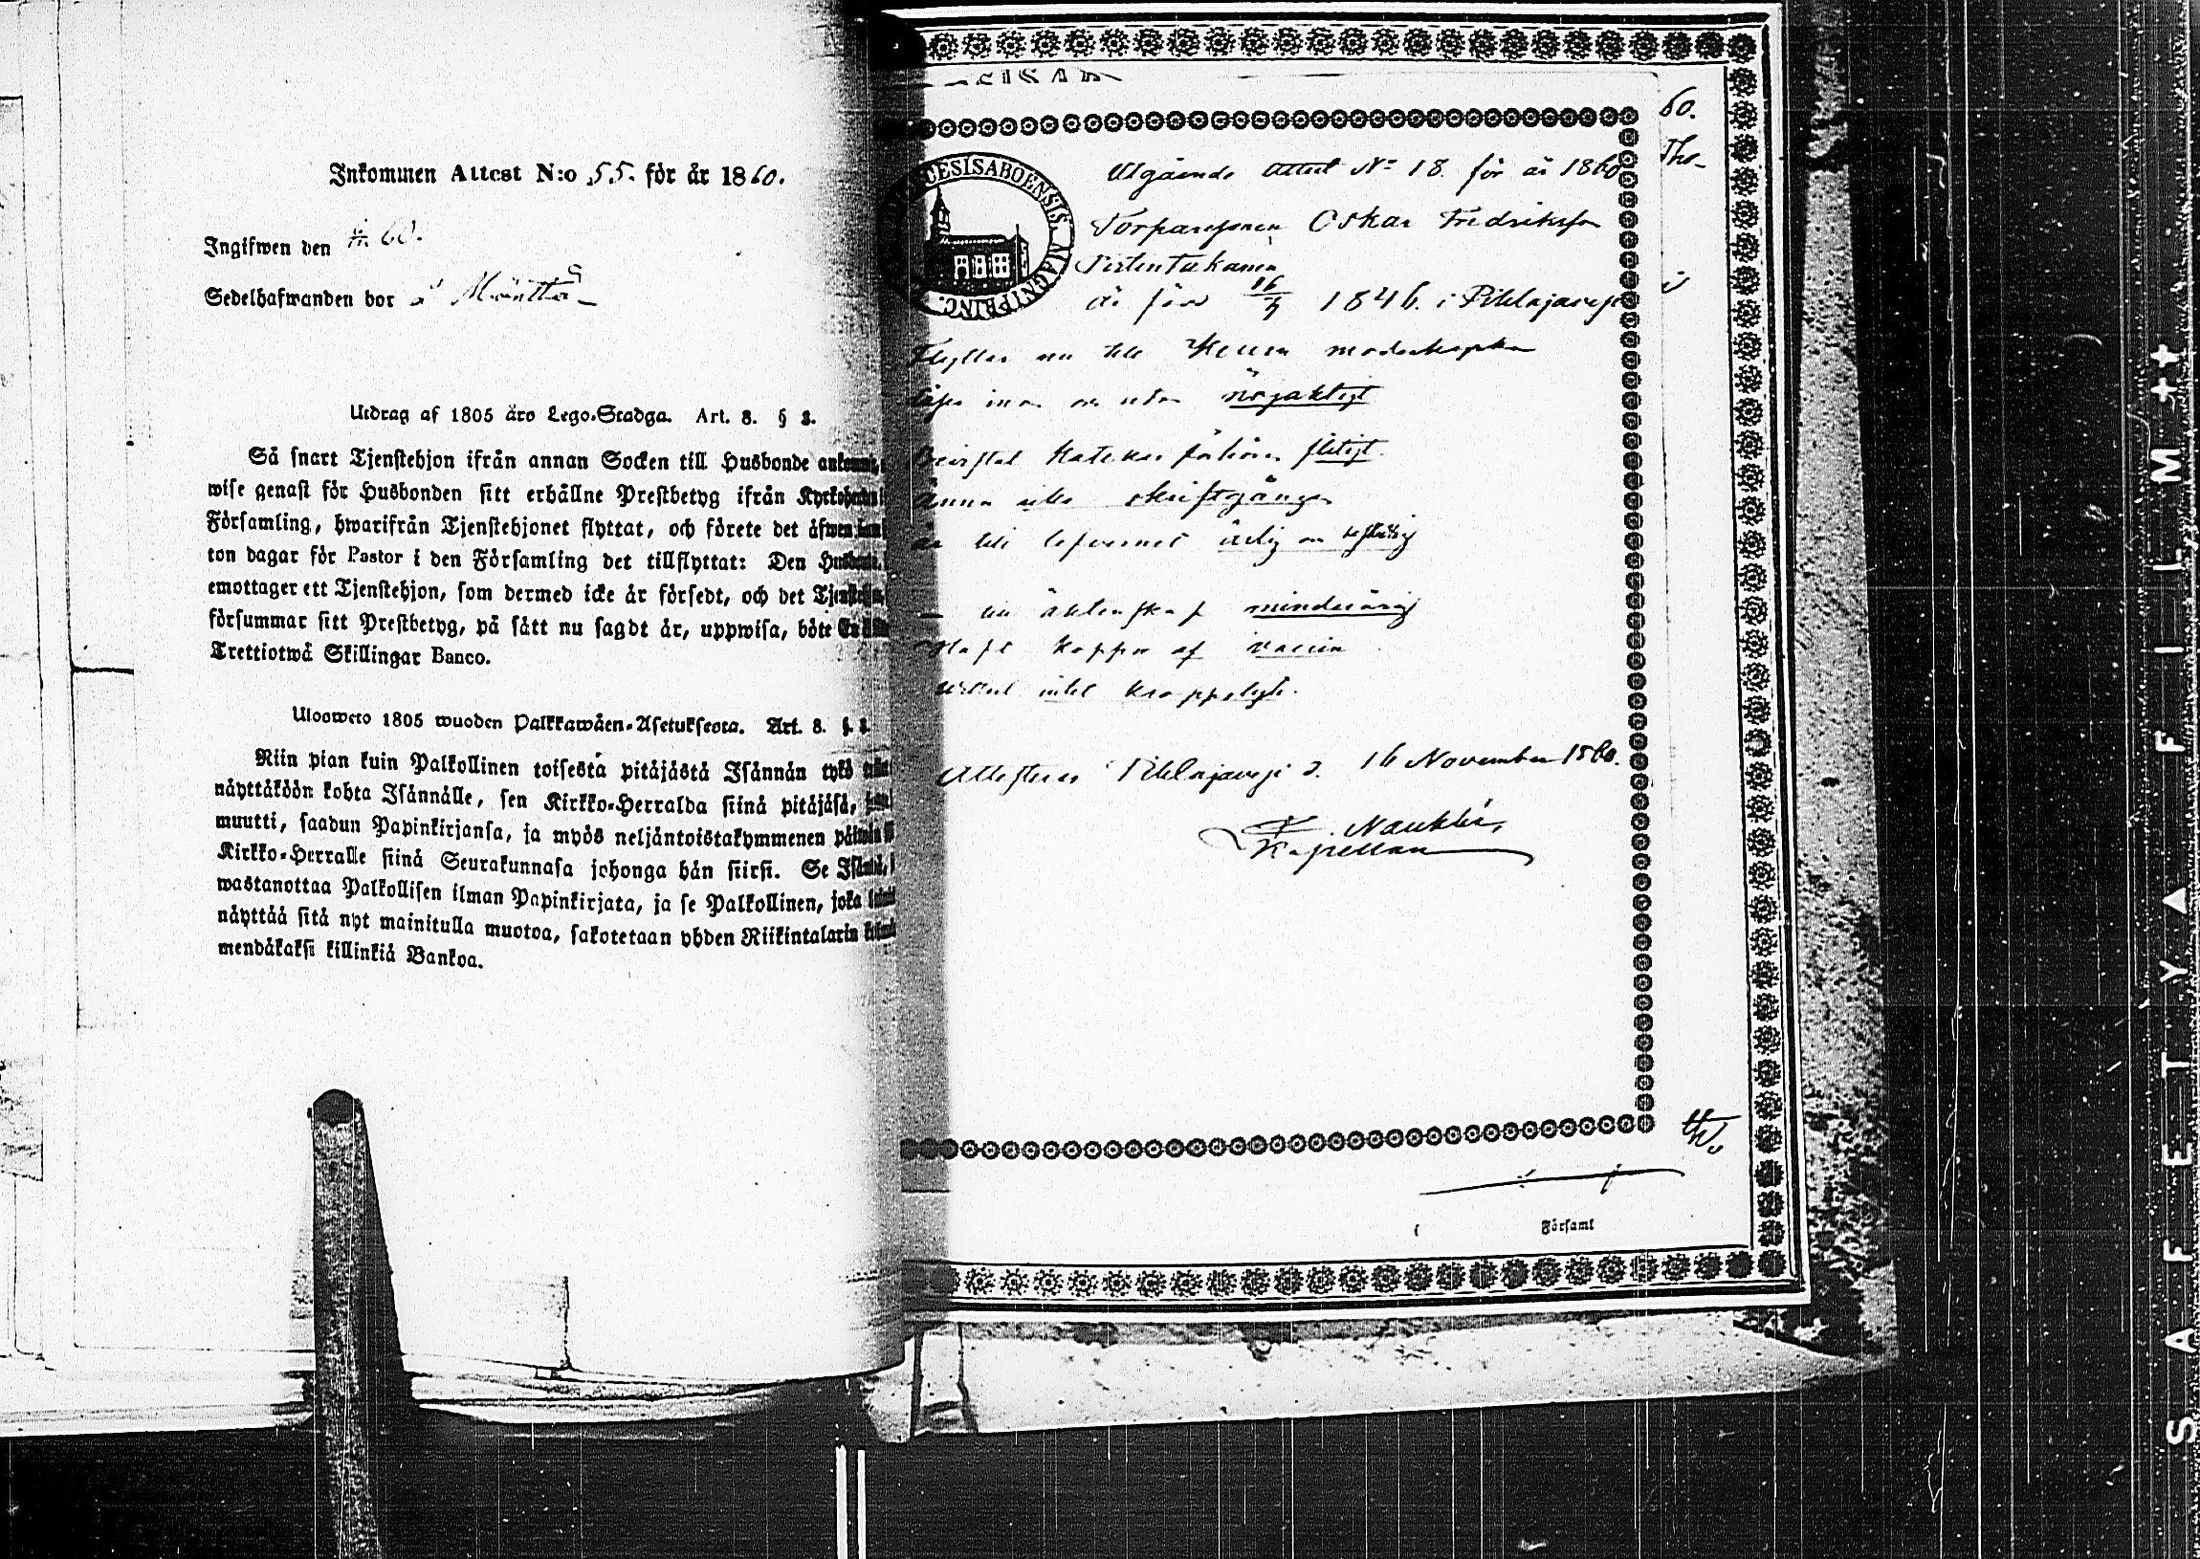 Inkommen Attest N:o 55. för år 1860.
Ingifwen den
Sedelhafwanden bor i Mänttä
Utdrag af 1805 års Lego-Stadga. Art. 8. § 3.
Så snart Tjenstehjon ifrån annan Socken till Husbonde
wise genast för Husbonden sitt erhållne Prestbetyg ifrån
Församling, hwarifrån Tjenstehjonet flyttat, och förete det äfwen
ton dagar för Pastor i den Församling det tillflyttat: Den
emottager ett Tjenstehjon, som dermed icke är försedt, och det
försummar sitt Prestbetyg, på sätt nu sagdt är, uppwisa, böte
Trettiotwå Skillingar Banco.
Ulosweto 1805 wuoden Palkkawäen-Asetuksesta. Art. 8. §. 3.
Niin pian kuin Palkollinen toisesta pitäjästä Isännän tykö
näyttäköön kohta Isännälle, sen Kirkko-Herralda siinä pitäjäsä,
muutti, saadun Papinkirjansa, ja myös neljäntoistakymmenen
Kirkko-Herralle siinä Seurakunnasa johonga hän siirsi. Se
wastanottaa Palkollisen ilman Papinkirjata, ja se Palkollinen, joka
näyttää sitä nyt mainitulla muotoa, sakotetaan yhden Riikintalarin
mendäkaksi killinkiä Bankoa.
60.
CESIS ABOENSIS MAGNI PRINC.
Utgående Attest No 18. för år 1860
Torparesonen Oskar Fredriksson
är född 1846. i Pihlajavesi
Flyttar nu till Keuru moderkapell
nöjaktigt
Bevistat Katekes förhören flitigt.
ännu icke skriftgången
är till lefvernet ärlig
till äktenskap minderårig
haft koppor af vaccin
intet kroppslyte.
Attesteras Pihlajavesi d. 16 November 1860.
Kapellan
Församl
SAFETY FILM